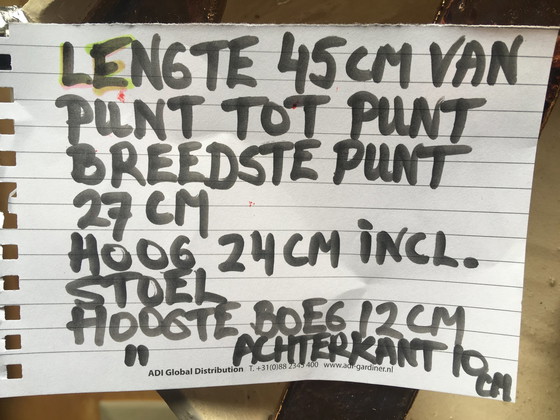 LENGTE 45 CM VAN
PUNT TOT PUNT
BREEDSTE PUNT
27 CM
HOOG 24 CM INCL.
STOEL
HOOGTE BOEG 12 CM
" ACHTERKANT 10 CM
ADI Global Distribution T. +31(0)88 2345 400 www.adi-gardiner.nl